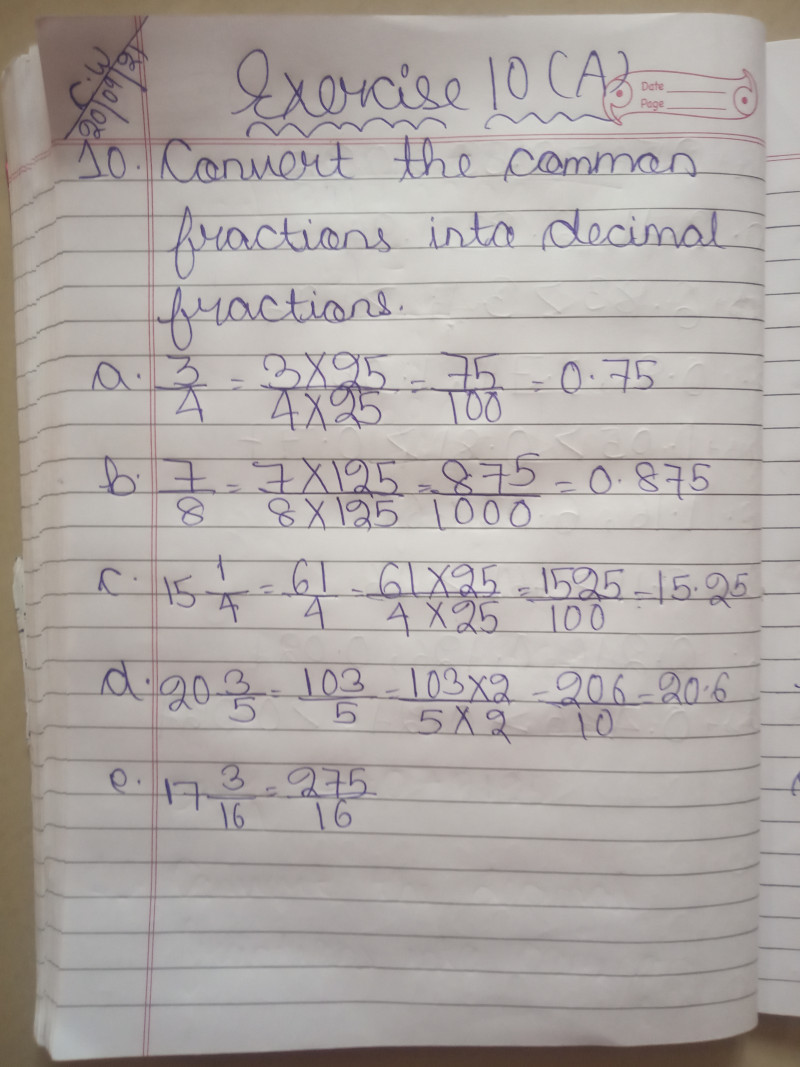 C.W
20/09/21
Exercise 10(A)
Date
Page
10. Convert the common
fractions into decimal
fractions.
a. 3/4 = 3×25/4×25 = 75/100 = 0.75
b. 7/8 = 7×125/8×125 = 875/1000 = 0.875
c. 15 1/4 = 61/4 = 61×25/4×25 = 1525/100 = 15.25
d. 20 3/5 = 103/5 = 103×2/5×2 = 206/10 = 20.6
e. 17 3/16 = 275/16